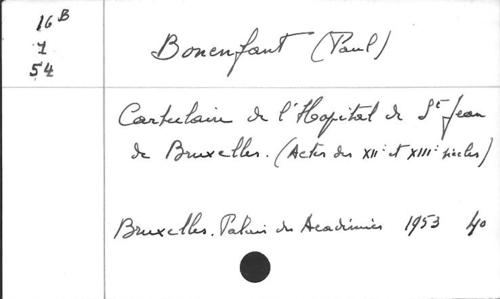 16 B
1
54
Bonenfant (Paul)
Cartulaire de l'Hopital de St Jean
de Bruxelles. (Actes des XIIe et XIIIe siècles)
Bruxelles. Palais des Académies 1953 4o